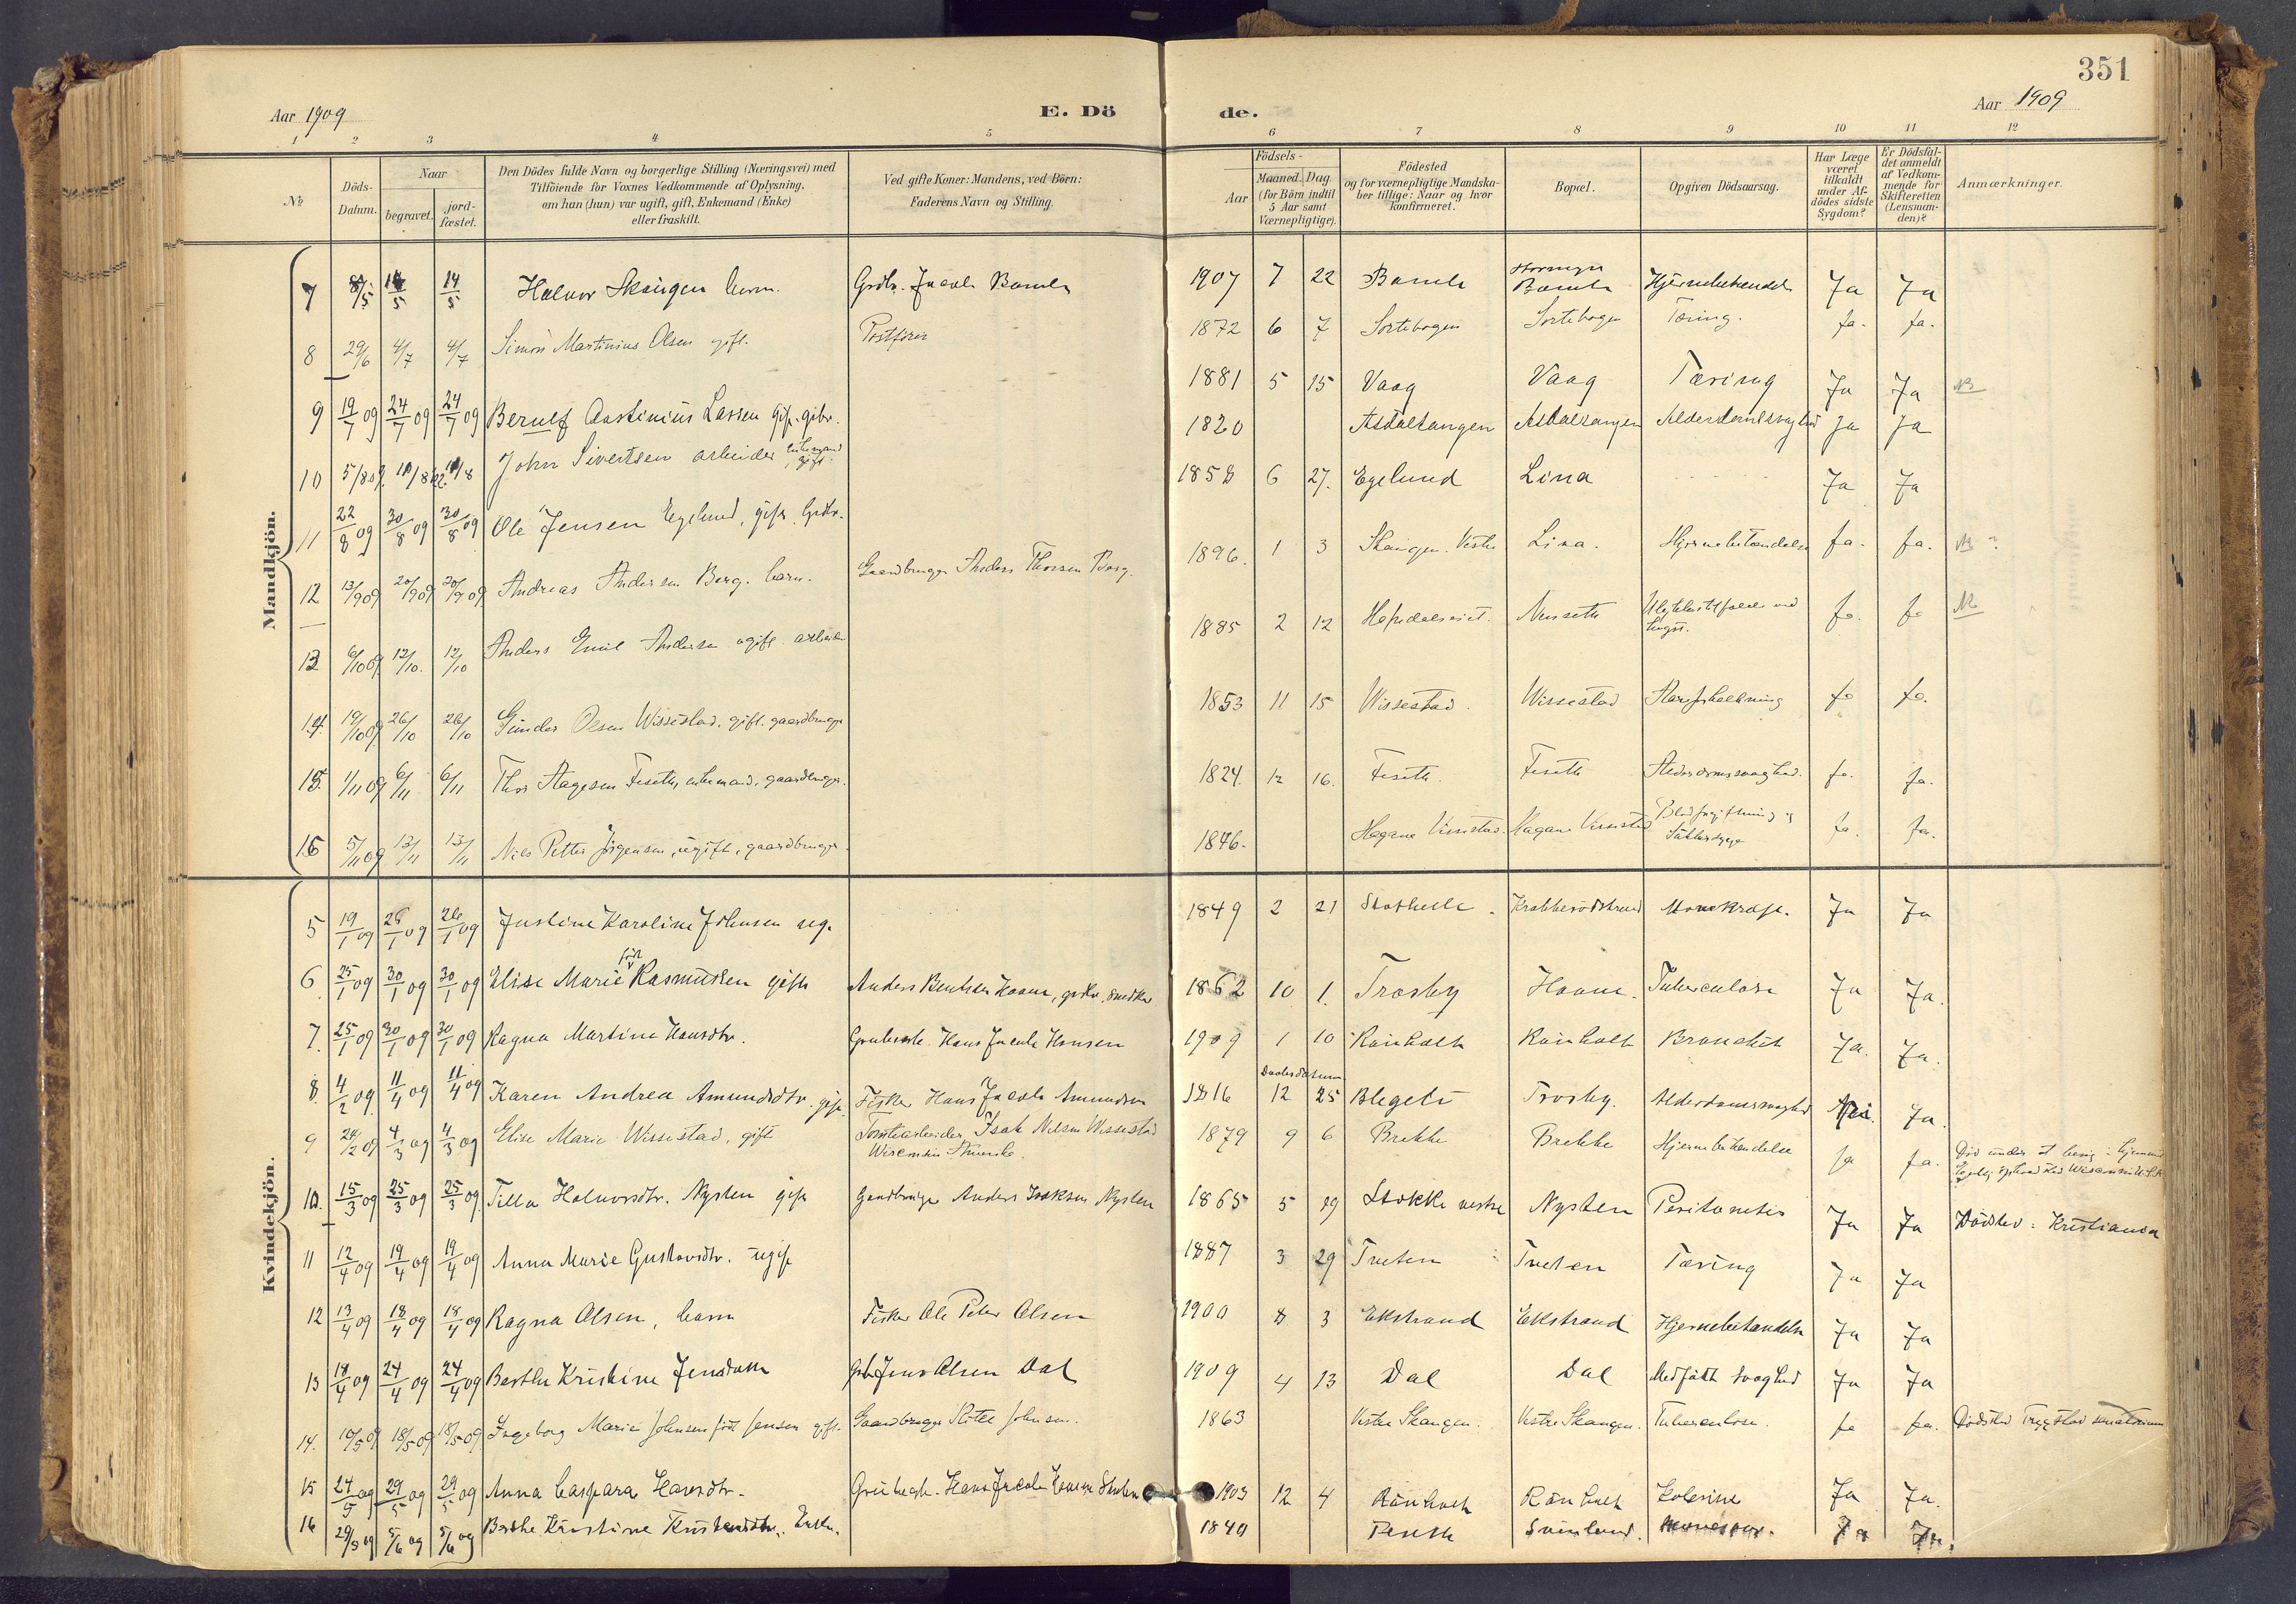 351
Aar 1909
E. Dö de.
Aar 1909
1 2 3 4 5 6 7 8 9 10 11 12
No
Döds-Datum.
Naar
begravet.
jord-fæstet.
Den Dödes fulde Navn og borgerlige Stilling (Næringsvei) med
Tilföiende for Voxnes Vedkommende af Oplysning,
om han (hun) var ugift, gift, Enkemand (Enke)
eller fraskilt.
Ved gifte Koner: Mandens, ved Börn:
Faderens Navn og Stilling.
Födsels-
Aar
Maaned. Dag
(for Börn indtil
5 Aar samt
Værnepligtige).
Födested
og for værnepligtige Mandska-
ber tillige: Naar og hvor
konfirmeret.
Bopæl.
Opgiven Dödsaarsag.
Har Læge
været
tilkaldt
under Af-
dödes sidste
Sygdom?
Er Dödsfal-
det anmeldt
af Vedkom-
mende for
Skifteretten
(Lensman-
den)?
Anmærkninger.
Mandkjön.
7 8/5 14/5 14/5 Halvor Skaugen barn. Grdbr. Jacob Bamle 1907 7 22 Bamle Bamle Hjernebetændelse Ja Ja
8 29/6 4/7 4/7 Simon Martinius Olsen gift. Postfører 1872 6 7 Sortebogen Sortebogen Tæring. Ja. Ja.
9 19/7 09 24/7 09 24/7 09 Berulf Aastinius Lassen gift. gbr. 1881 5 15 Vaag Vaag Tæring Ja Ja NB
10 5/8 09 11/8 11/8 John Sivertsen arbeider Enkemand gift 1820 Asdaltangen Asdaltangen Alderdomssvaghed Ja Ja
11 22/8 09 30/8 09 30/8 09 Ole Jensen Egelund, gift, Grdbr. 1858 6 27. Egelund Lina Ja Ja
12 13/9 09 20/9 09 20/9 09 Andreas Andersen Berg. barn. Gaardbruger Anders Thorsen Berg. 1896. 1 3 Skaugen. Vestre Lina. Hjernebetændelse Ja. Ja. NB
13 6/10 09 12/10. 12/10 Anders Emil Andersen ugift arbeider 1885 2 12 Ulykkestilfælde ved NB
14. 19/10 09 26/10 26/10 Gunder Olsen Wissestad. gift. gaardbruger 1853 11 15 Wissestad. Wissestad Ja Ja.
15. 1/11 09 6/11 6/11 Thor Aagesen Feseth, enkemand, gaardbruger. 1824. 12 16. Feseth. Feseth Alderdomssvaghed. Ja. Ja.
16 5/11 09 13/11 13/11 Nils Petter Jörgensen, ugift, gaardbruger. 1846. Hagane Vissestad. Hagane Vissestad Blodforgiftning og Sukkersyge Ja. Ja.
Kvindekjön.
5 19/1 09 26/1 09 26/1 09 Justine Karoline Johnsen ug. 1849 2 21 Stathelle. Krabberödstrand Mavekræft. Ja Ja
6 25/1 09 30/1 09 30/1 09 Elise Marie född Rasmussen gift Anders Bentsen Hovne, grdbr. 1862 10 1. Trosby Hovne. Tuberculose Ja Ja.
7. 25/1 09 30/1 09 30/1 09 Ragna Martine Hansdtr. Grubearb. Hans Jacob Hansen 1909 1 10 Rönholt Rönholt Bronchit Ja. Ja.
8. 4/2 09 11/4 09 11/4 09 Karen Andrea Amundsdtr. gift. Fisker Hans Jacob Amundsen 1816 Daabsdatum 12 25 Blegeti Trosby. Alderdomssvaghed Nei. Ja.
9 24/2 09 4/3 09 4/3 09 Elise Marie Wissestad, gift Tomtearbeider Isak Nilsen Wissestad
Wisconsin Amerika. 1879 9 6 Brekke Brekke Hjernebetændelse Ja Ja. Död under et besög i hjemmet
10. 15/3 09 25/3 09 25/3 09 Tilla Halvorsdtr. Nysten gift Gaardbruger Anders Isaksen Nysten 1865 5 29 Stokke vestre Nysten Peritonitis Ja Ja Dödsted: Kristiania
11 12/4 09 19/4 09 19/4 09 Anna Marie Gustavsdtr. ugift 1887 3 29 Tveten Tveten Tæring Ja Ja
12 13/4 09 18/4 09 18/4 09 Ragna Olsen, barn Fisker Ole Peter Olsen 1900 8 3 Ekstrand Ekstrand Hjernebetændelse Ja Ja
13 18/4 09 24/4 09 24/4 09 Berthe Kristine Jensdatter Gbr Jens Olsen Dal 1909 4 13 Dal Dal Medfödt svaghed Ja Ja
14. 10/5 09 18/5 09 18/5 09 Ingeborg Marie Johnsen född Jensen gift. Gaardbruger Johnsen. 1863 Vestre Skaugen. Vestre Skaugen. Tuberculose. Ja Ja. Dödsted Tryggstad sanatorium
15 24/5 09 29/5 09 29/5 09 Anna Caspara Hansdtr. Grubearb. Hans Jacob 1903 12 4 Rönholt Rönholt Kolerine Ja Ja.
16 29/5 09 5/6 09 5/6 09 Berthe Kristine Enke. 1840 Feseth Ja Ja.